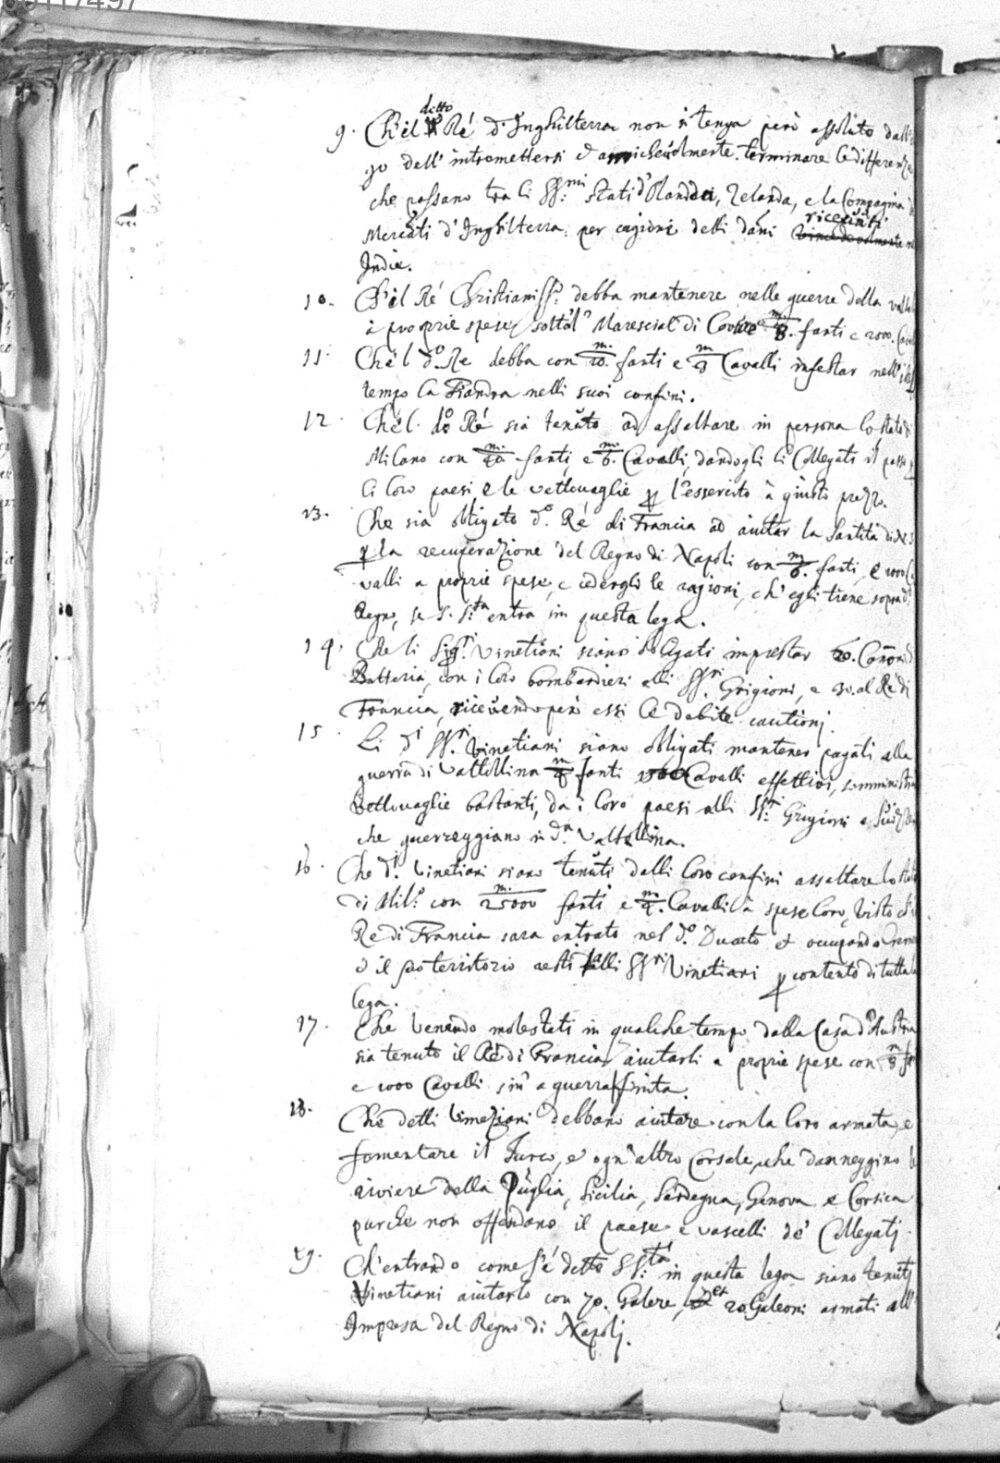 9. Ch'el detto Ré d'Inghilterra non si tenga però assoluto dall'
go dell'intromettersi et amichevolmente terminare le differenze
che passano tra li SS.mi Stati d'Olanda, Zelanda, e la Compagnia
Mercãti d'Inghilterra, per cagione delli dani ricevuti
Indie.
10. Ch'el Ré Christianiss.o debba mantenere nelle guerre della
à proprie spese, sotto'l Marescial di m/8. fanti e 2000.
11. Ch'el d.o Re debba con m/20. fanti e m/ Cavalli infestar nell'
tempo la Fiandra nelli suoi confini.
12. Ch'el d.o Ré sia tenuto ad assaltare in persona lo stato di
Milano con m/40 fanti, e m/6. Cavalli, dandogli li Collegati il passo
li loro paesi, e le vettovaglie p l'essercito à giusto prezzo.
13. Che sia obligato d.o Ré di Francia ad aiutar la Santità di
p la recuperazione del Regno di Napoli con m/6. fanti, e 1000
valli a proprie spese, e cedergli le ragioni, ch'egli tiene sopra d.o
Regno, se S. S.ta entra in questa lega.
14. Che li Sig.ri Vinetiani siano obligati imprestar 20. Cañoni
Batteria, con i loro bombardieri alli SS.ri Grigioni, e 30. al Re di
Francia, ricevendo però essi le debite cautioni.
15. Li d.i SS.ri Vinetiani siano obligati mantener pagati alla
guerra di Valtellina m/ fanti Cavalli effettivi, somministrar
Vettovaglie bastanti, da i loro paesi alli SS.ri Grigioni e
che guerreggiano in d.a Valtellina.
16. Che d.i Vinetiani siano tenuti dalli loro confini assaltare lo stato
di Mil.o con m. 25000 fanti e m/4. Cavalli à spese loro, visto ch'il
Re di Francia sara entrato nel d.o Ducato et occupando
et il suo territorio resti alli SS.ri Vinetiani p contento di tutta la
lega.
17. Che venendo molestati in qualche tempo dalla Casa d'Austria
sia tenuto il Ré di Francia aiutarli a proprie spese con m/8
e 1000 Cavalli sin' a guerra finita.
18. Che detti Vineziani debbano aiutare con la loro armata, e
fomentare il Turco, e ogn'altro Corsale, che danneggino le
riviere della Puglia, Sicilia, Sardegna, Genova e Corsica
purche non offendano il paese e vascelli de' Collegati.
19. Ch'entrando come s'é detto S S.tà in questa lega siano tenuti
Vinetiani aiutarlo con 70. Galere, et 20 Galeoni armati all'
Impresa del Regno di Napoli.